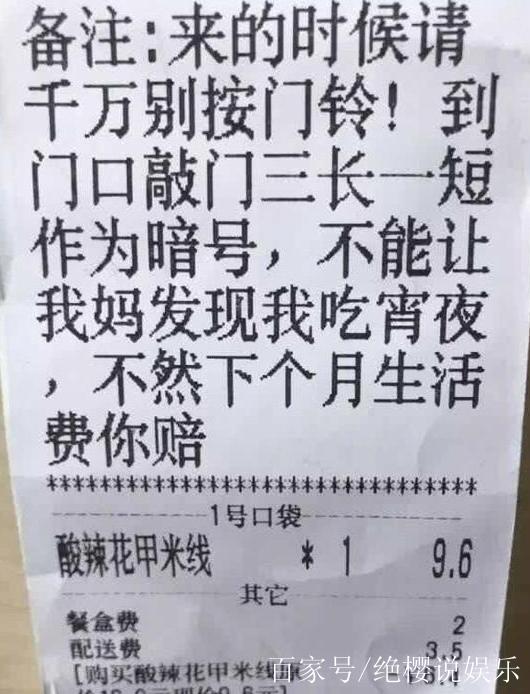 备注:来的时候请
千万别按门铃!到
门口敲门三长一短
作为暗号,不能让
我妈发现我吃宵夜
,不然下个月生活
费你赔
********************************
1号口袋
酸辣花甲米线 * 1 9.6
其它
餐盒费 2
配送费 3.5
[购买酸辣花甲米线
百家号/绝樱说娱乐